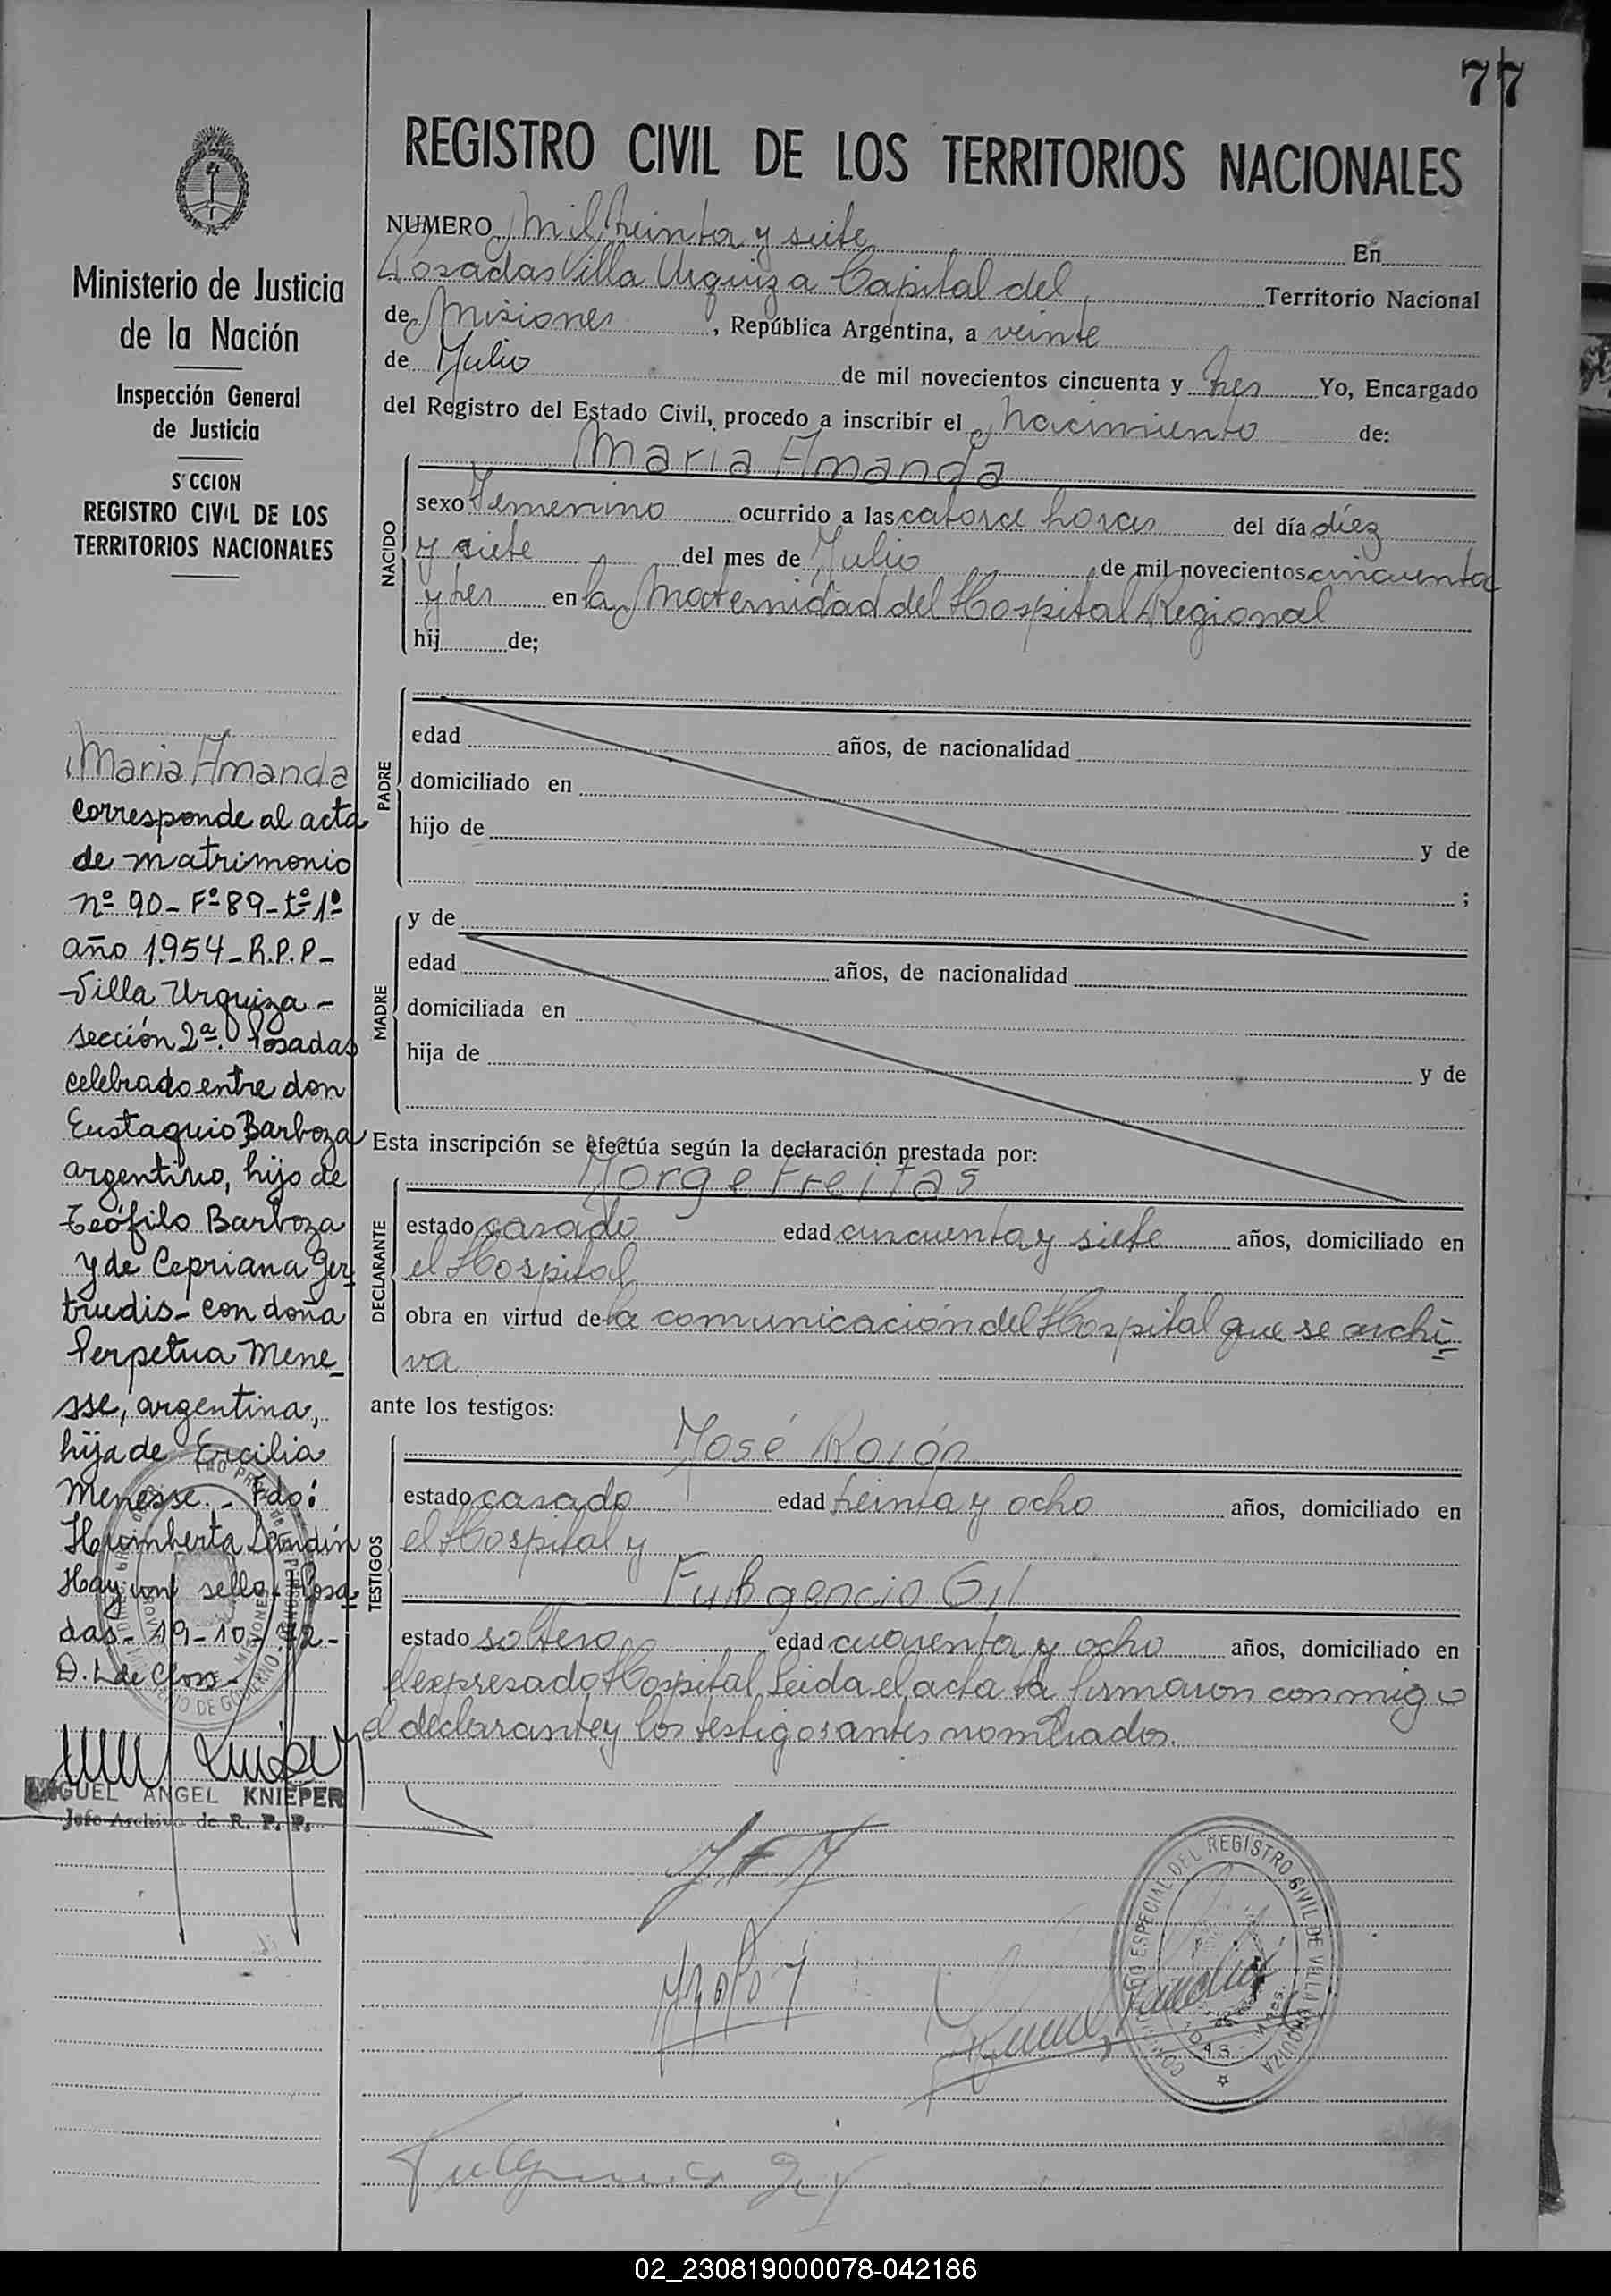 77
REGISTRO CIVIL DE LOS TERRITORIOS NACIONALES
Ministerio de Justicia
de la Nación
Inspección General
de Justicia
S'CCION
REGISTRO CIVIL DE LOS
TERRITORIOS NACIONALES
Maria Amanda
corresponde al acta
de matrimonio
nº 90 - Fº 89 - tº 1º
año 1954 - R.P.P -
Villa Urquiza -
sección 2ª. Posadas
celebrado entre don
Eustaquio Barboza
argentino, hijo de
Teófilo Barboza
y de Cepriana Ger-
trudis - con doña
Perpetua Mene-
sse, argentina,
hija de Ercilia
Menesse. - Fdo:
Humberta Landín
Hay un sello - Posa-
das - 19-10-72 -
D. L de Closs -
MIGUEL ANGEL KNIEPER
Jefe Archivo de R. P. P.
NUMERO Mil treinta y siete En
Posadas Villa Urquiza Capital del Territorio Nacional
de Misiones, República Argentina, a veinte
de Julio de mil novecientos cincuenta y tres Yo, Encargado
del Registro del Estado Civil, procedo a inscribir el Nacimiento de:
Maria Amanda
NACIDO
sexo Femenino ocurrido a las catorce horas del día diez
y siete del mes de Julio de mil novecientos cincuenta
y tres en la Maternidad del Hospital Regional
hij de;
PADRE
edad años, de nacionalidad
domiciliado en
hijo de y de
;
MADRE
y de
edad años, de nacionalidad
domiciliada en
hija de y de
Esta inscripción se efectúa según la declaración prestada por:
Jorge Freitas
DECLARANTE
estado casado edad cincuenta y siete años, domiciliado en
el Hospital
obra en virtud de la comunicación del Hospital que se archi-
va
ante los testigos:
José Rolón
TESTIGOS
estado casado edad treinta y ocho años, domiciliado en
el Hospital y
Fulgencio Gil
estado soltero edad cuarenta y ocho años, domiciliado en
el expresado Hospital Leida el acta la firmaron conmigo
el declarante y los testigos antes nombrados.
REGISTRO CIVIL DE VILLA URQUIZA
Fulgencio Gil
02_230819000078-042186